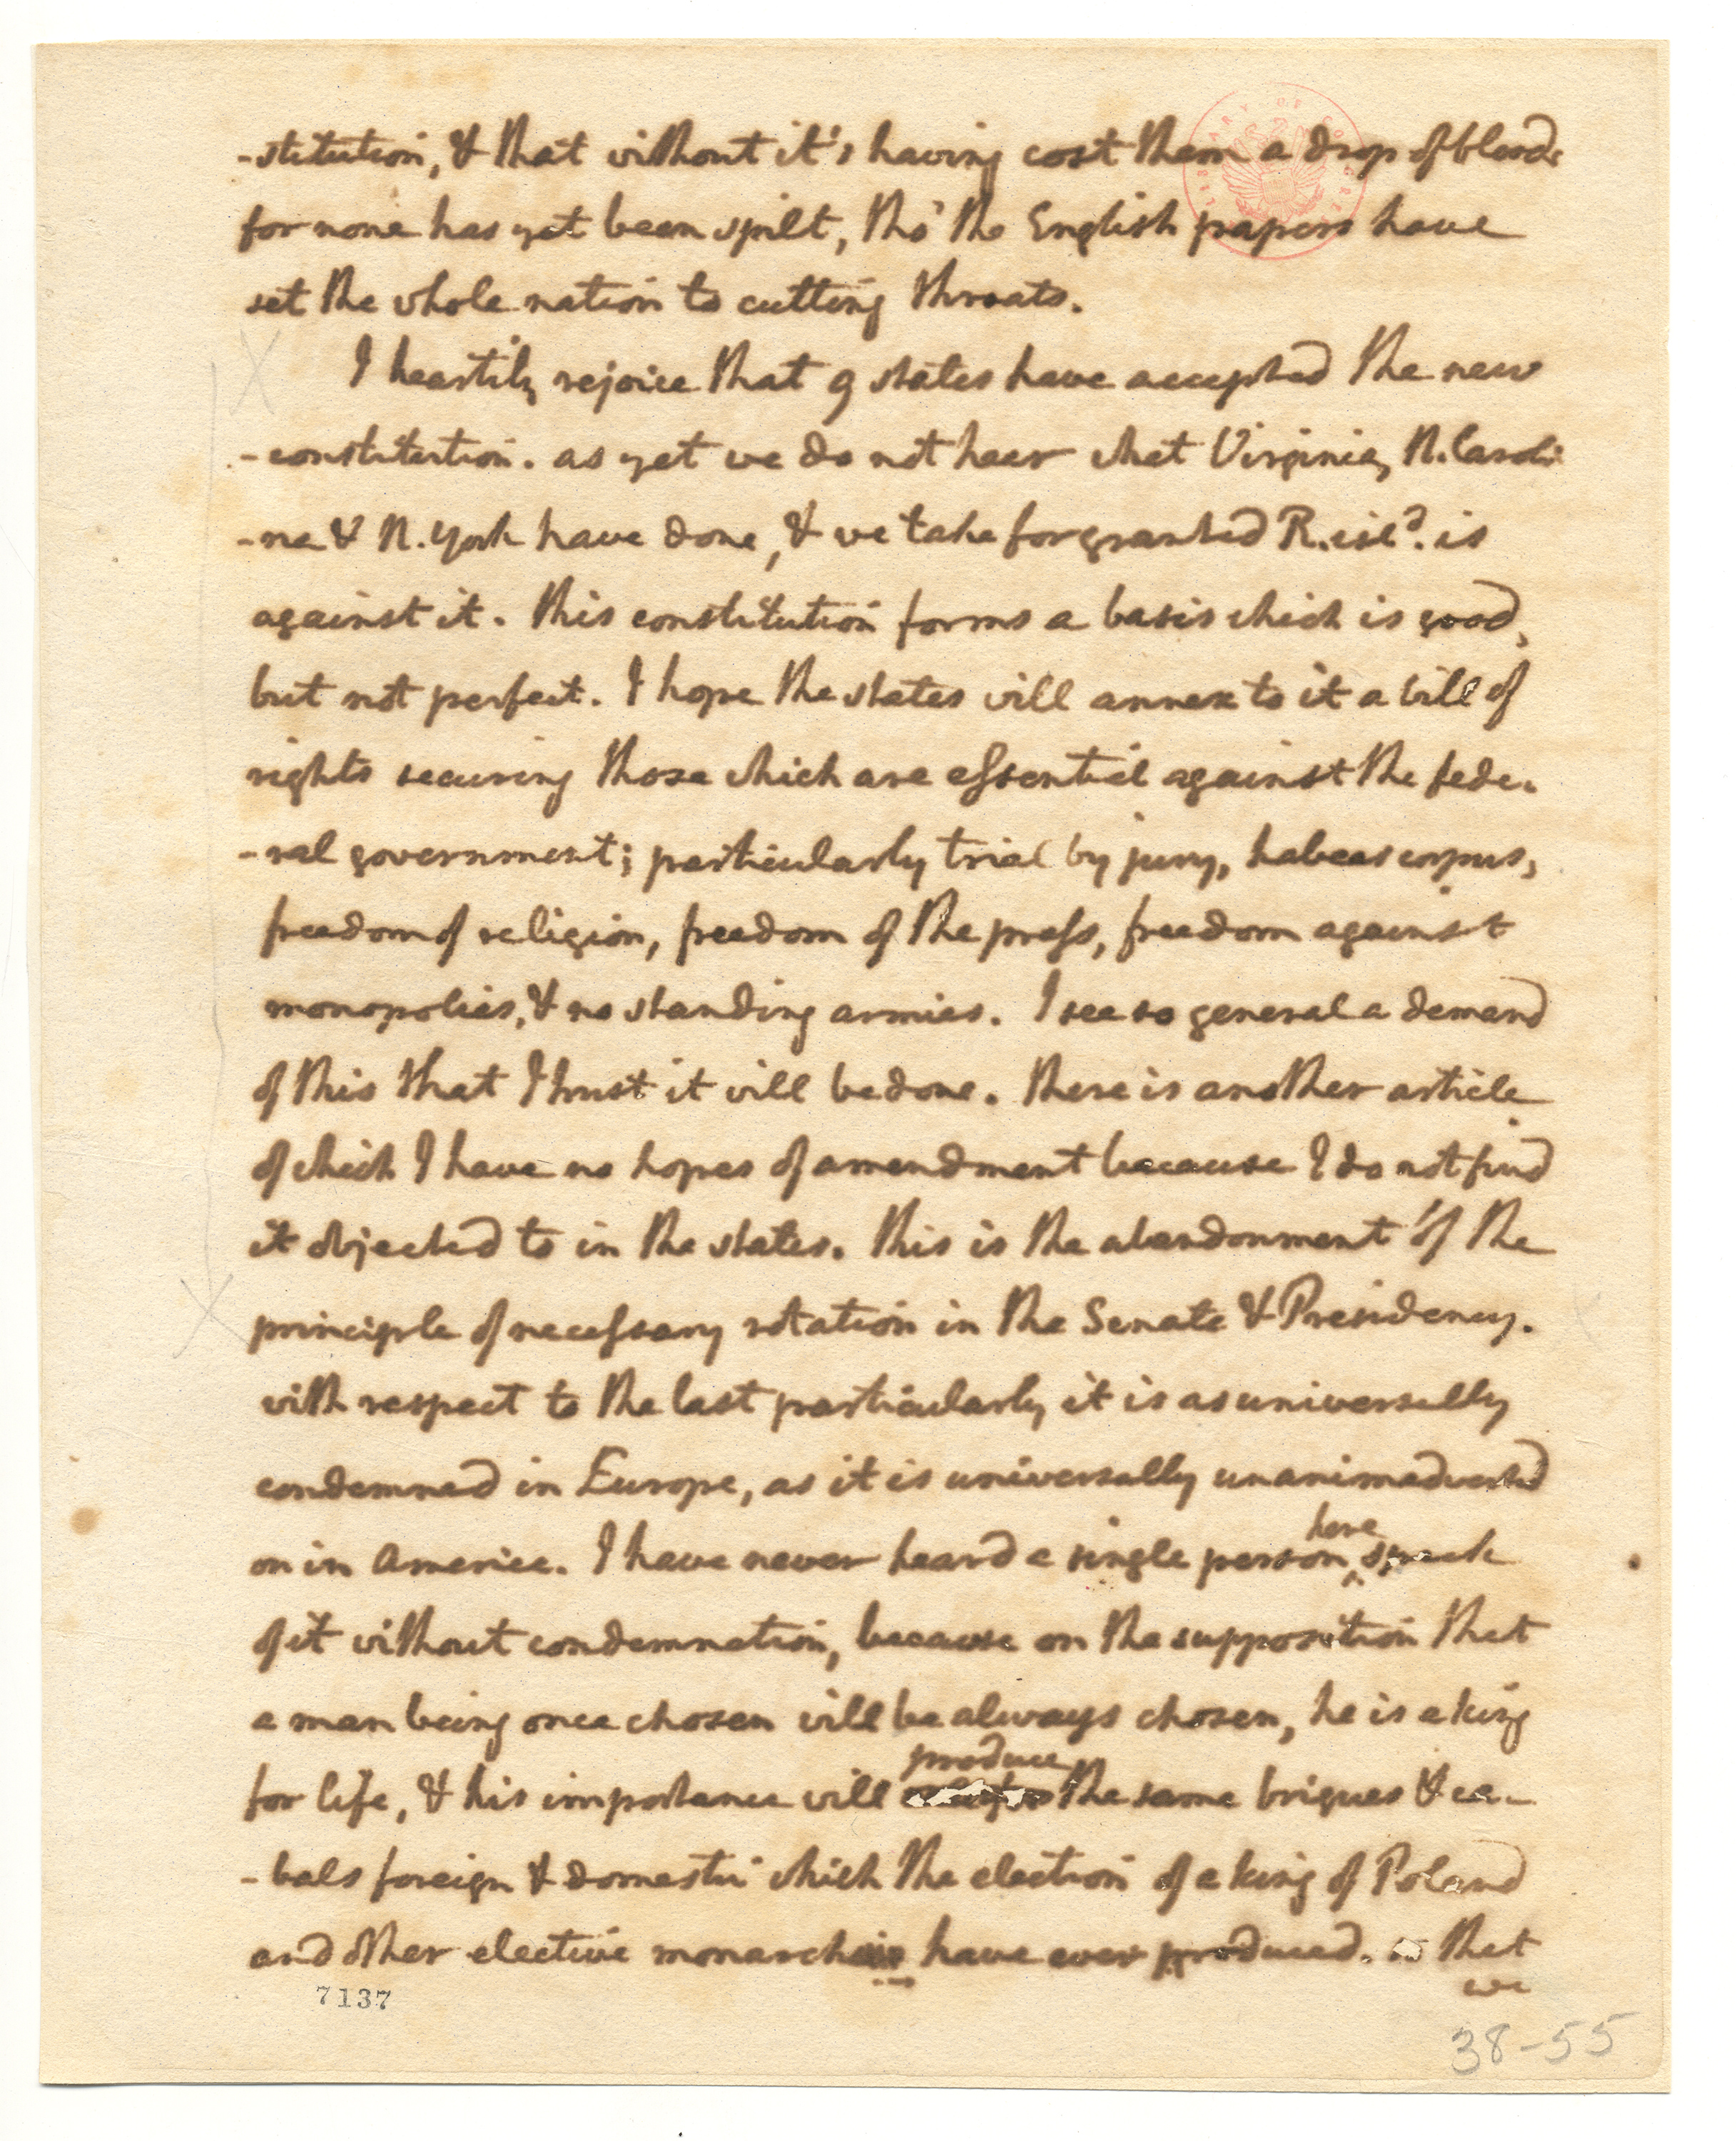 -stitution, & that without it's having cost them a drop of blood.
for none has yet been spilt, tho' the English papers have
set the whole nation to cutting throats.
I heartily rejoice that 9 states have accepted the new
-constitution. as yet we do not hear what Virginia, N. Caroli
-na & N. York have done, & we take for granted R. isld. is
against it. this constitution forms a basis which is good,
but not perfect. I hope the states will annex to it a bill of
rights securing those which are essential against the fede-
-ral government; particularly trial by jury, habeas corpus,
freedom of religion, freedom of the press, freedom against
monopolies, & no standing armies. I see so general a demand
of this that I trust it will be done. there is another article
of which I have no hopes of amendment because I do not find
it objected to in the states. this is the abandonment of the
principle of necessary rotation in the Senate & Presidency.
with respect to the last particularly it is as universally
condemned in Europe, as it is universally unanimadverted
on in America. I have never heard a single person here speak
of it without condemnation, because on the supposition that
a man being once chosen will be always chosen, he is a king
for life, & his importance will produce the same brigues & ca-
-bals foreign & domestic which the election of a king of Poland
and other elective monarchies have ever produced. so that
we
7137
38-55
LIBRARY OF CONGRESS